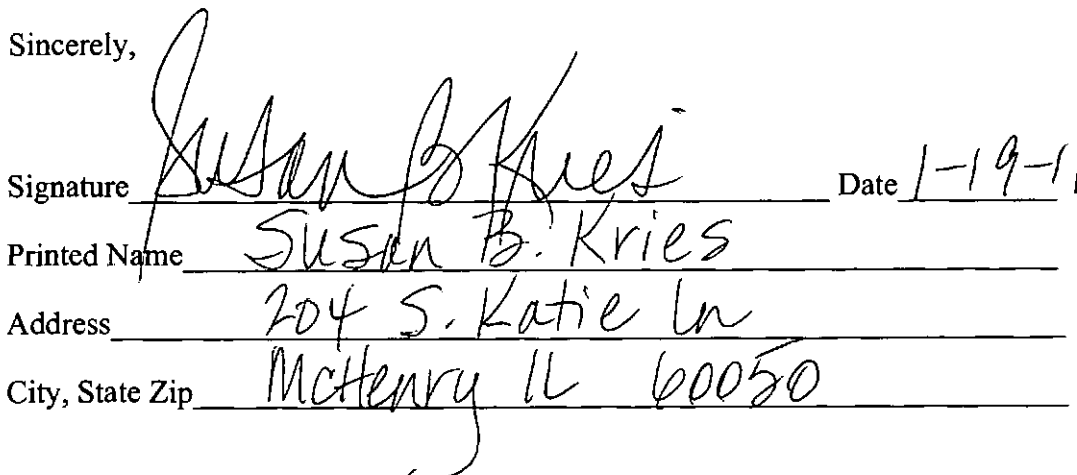 Sincerely,
Signature Susan B Kries Date 1-19-1
Printed Name Susan B. Kries
Address 204 S. Katie Ln
City, State Zip McHenry IL 60050